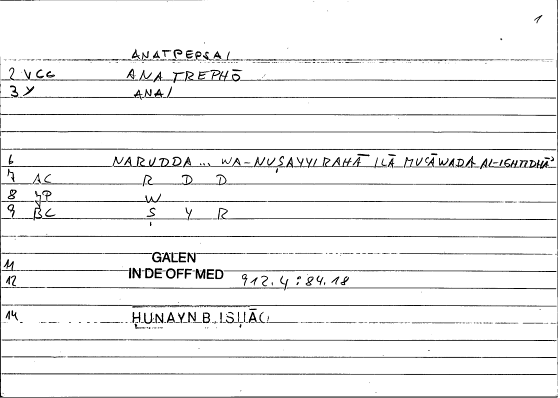 1
ANATPEPSAI
2 VCG ANATREPHŌ
3 Y ANAI
6 NARUDDA ... WA-NUṢAYYIRAHĀ ILĀ MUʿĀWADA AL-IGHTIDHĀʾ
7 AC R D D
8 JP W
9 BC Ṣ Y R
11 GALEN
12 IN DE OFF MED 912.4 : 84.18
14 ḤUNAYN B. ISḤĀQ